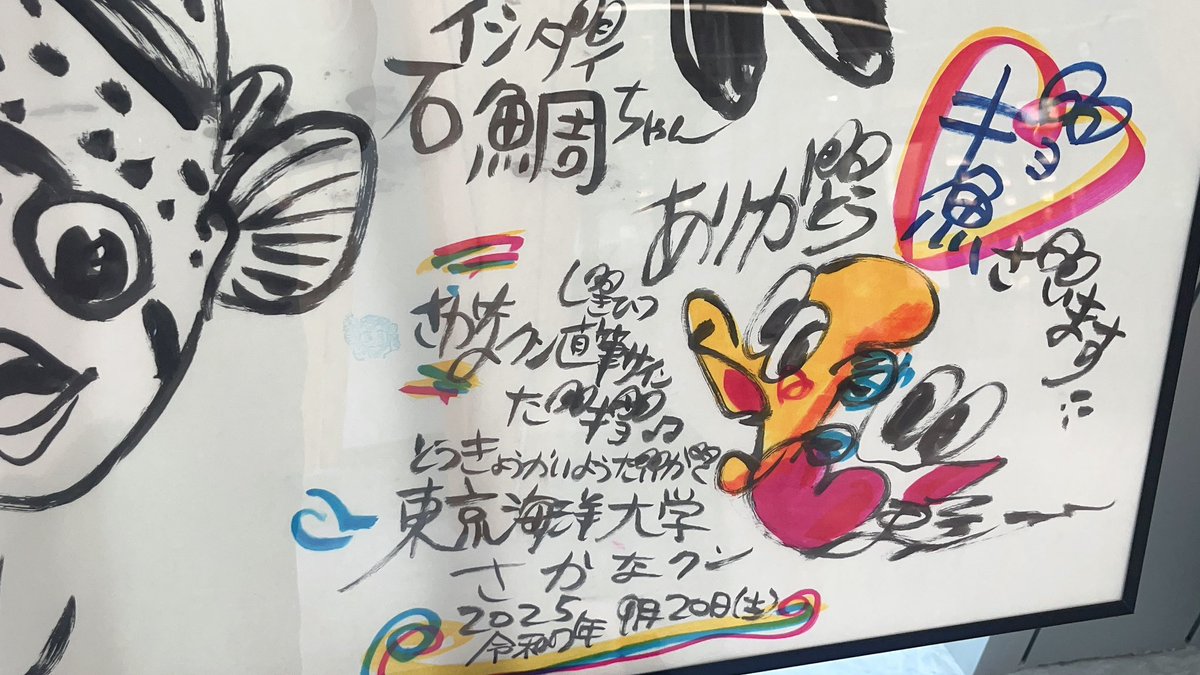 イシダイ
石鯛ちゃん
ありがとう
ございます
じきひつ
さかなクン直筆サイン
だギョ
とうきょうかいようだいがく
東京海洋大学
さかなクン
2025 9月20日(土)
令和7年